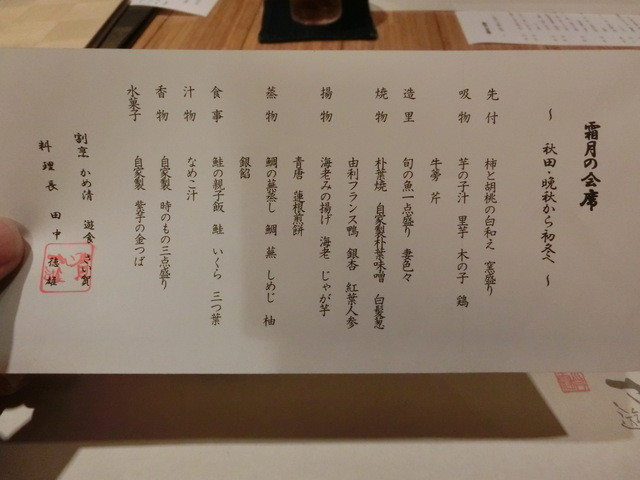 霜月の会席
～ 秋田・晩秋から初冬へ ～
先付 柿と胡桃の白和え 窯盛り
吸物 芋の子汁 里芋 木の子 鶏
牛蒡 芹
造里 旬の魚一点盛り 妻色々
焼物 朴葉焼 自家製朴葉味噌 白髪葱
由利フランス鴨 銀杏 紅葉人参
揚物 海老みの揚げ 海老 じゃが芋
青唐 蓮根煎餅
蒸物 鯛の蕪蒸し 鯛 蕪 しめじ 柚
銀餡
食事 鮭の親子飯 鮭 いくら 三つ葉
汁物 なめこ汁
香物 自家製 時のもの三点盛り
水菓子 自家製 紫芋の金つば
割烹 かめ清 遊食
料理長 田中